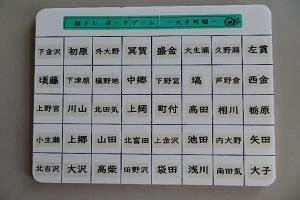 脳トレ ボードゲーム ー大子町編ー
下金沢 初原 外大野 冥賀 盛金 大生瀬 久野瀬 左貫
頃藤 下津原 槙野地 中郷 下野宮 塙 芦野倉 西金
上野宮 川山 北田気 上岡 町付 高田 相川 栃原
小生瀬 上郷 山田 北富田 上金沢 池田 内大野 矢田
北吉沢 大沢 高柴 田野沢 袋田 浅川 南田気 大子